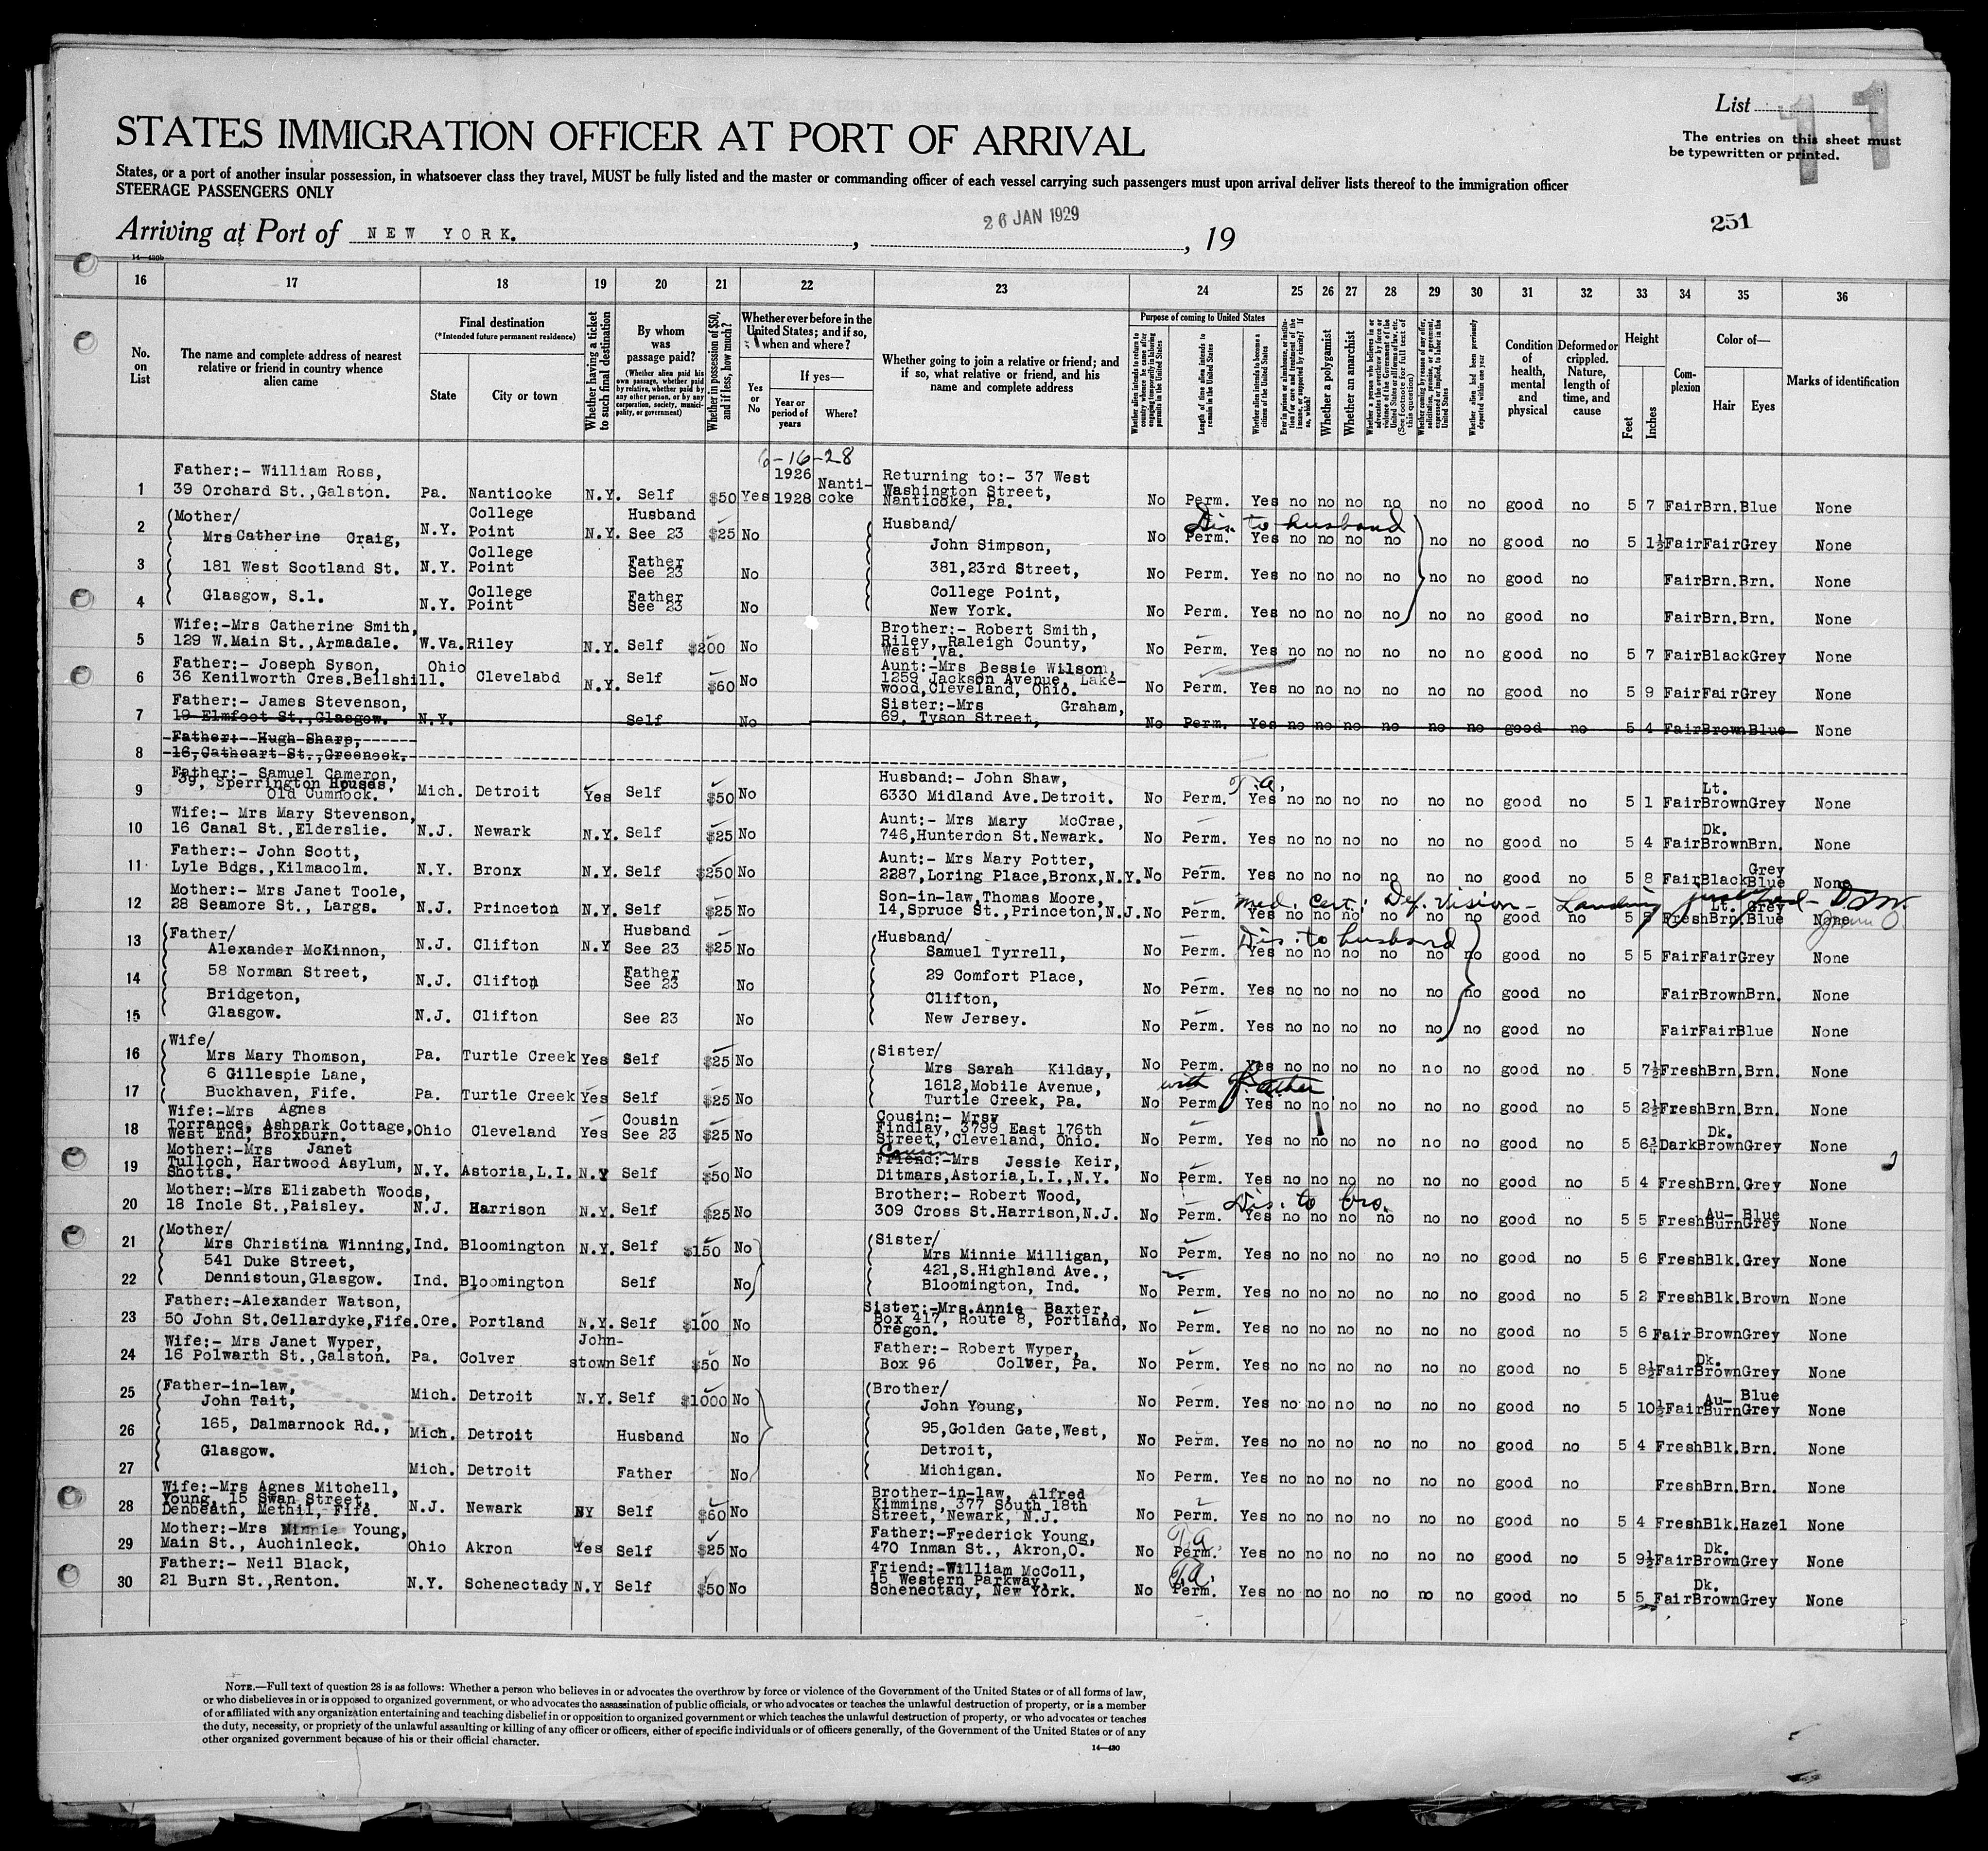 List 11
11
The entries on this sheet must
be typewritten or printed.
STATES IMMIGRATION OFFICER AT PORT OF ARRIVAL
States, or a port of another insular possession, in whatsoever class they travel, MUST be fully listed and the master or commanding officer of each vessel carrying such passengers must upon arrival deliver lists thereof to the immigration officer
STEERAGE PASSENGERS ONLY
26 JAN 1929
251
Arriving at Port of NEW YORK. , , 19
14—480b
16 17 18 19 20 21 22 23 24 25 26 27 28 29 30 31 32 33 34 35 36
No. on List
The name and complete address of nearest relative or friend in country whence alien came
Final destination
(*Intended future permanent residence)
State
City or town
Whether having a ticket to such final destination
By whom was passage paid?
(Whether alien paid his own passage, whether paid by relative, whether paid by any other person, or by any corporation, society, municipality, or government)
Whether in possession of $50, and if less, how much?
Whether ever before in the United States; and if so, when and where?
Yes or No
If yes—
Year or period of years
Where?
Whether going to join a relative or friend; and if so, what relative or friend, and his name and complete address
Purpose of coming to United States
Whether alien intends to return to country whence he came after engaging temporarily in laboring pursuits in the United States
Length of time alien intends to remain in the United States
Whether alien intends to become a citizen of the United States
Ever in prison or almshouse, or institution for care and treatment of the insane, or supported by charity? If so, which?
Whether a polygamist
Whether an anarchist
Whether a person who believes in or advocates the overthrow by force or violence of the Government of the United States or all forms of law, etc. (See footnote for full text of this question)
Whether coming by reason of any offer, solicitation, promise, or agreement, expressed or implied, to labor in the United States
Whether alien had been previously deported within one year
Condition of health, mental and physical
Deformed or crippled. Nature, length of time, and cause
Height
Feet
Inches
Complexion
Color of—
Hair
Eyes
Marks of identification
6-16-28
1 Father:- William Ross, 39 Orchard St.,Galston. Pa. Nanticoke N.Y. Self $50 Yes 1926 1928 Nanticoke Returning to:- 37 West Washington Street, Nanticoke, Pa. No Perm. Yes no no no no no no good no 5 7 Fair Brn. Blue None
2 Mother/ Mrs Catherine Craig, N.Y. College Point N.Y. Husband See 23 $25 No Husband/ John Simpson, No Perm. Yes no no no no no no good no 5 1½ Fair Fair Grey None
Dis. to husband
3 181 West Scotland St. N.Y. College Point Father See 23 No 381,23rd Street, No Perm. Yes no no no no no no good no Fair Brn. Brn. None
4 Glasgow, S.1. N.Y. College Point Father See 23 No College Point, New York. No Perm. Yes no no no no no no good no Fair Brn. Brn. None
5 Wife:-Mrs Catherine Smith, 129 W.Main St.,Armadale. W.Va. Riley N.Y. Self $200 No Brother:- Robert Smith, Riley, Raleigh County, West Va. No Perm. Yes no no no no no no good no 5 7 Fair Black Grey None
6 Father:- Joseph Syson, 36 Kenilworth Cres.Bellshill. Ohio Clevelabd N.Y. Self $60 No Aunt:-Mrs Bessie Wilson, 1259 Jackson Avenue, Lakewood,Cleveland, Ohio. No Perm. Yes no no no no no no good no 5 9 Fair Fair Grey None
7 Father:- James Stevenson, 19 Elmfoot St.,Glasgow. N.Y. Self No Sister:-Mrs Graham, 69, Tyson Street, No Perm. Yes no no no no no no good no 5 4 Fair Brown Blue None
8 Father:- Hugh Sharp, 16,Cathcart St.,Greenock.
9 Father:- Samuel Cameron, 39, Sperrington Houses, Old Cumnock. Mich. Detroit Yes Self $50 No Husband:- John Shaw, 6330 Midland Ave.Detroit. No Perm. Yes no no no no no no good no 5 1 Fair Lt. Brown Grey None
T.a.
10 Wife:- Mrs Mary Stevenson, 16 Canal St.,Elderslie. N.J. Newark N.Y. Self $25 No Aunt:- Mrs Mary McCrae, 746,Hunterdon St.Newark. No Perm. Yes no no no no no no good no 5 4 Fair Dk. Brown Brn. None
11 Father:- John Scott, Lyle Bdgs.,Kilmacolm. N.Y. Bronx N.Y. Self $250 No Aunt:- Mrs Mary Potter, 2287,Loring Place,Bronx,N.Y. No Perm. Yes no no no no no no good no 5 8 Fair Black Grey Blue None
12 Mother:- Mrs Janet Toole, 28 Seamore St., Largs. N.J. Princeton N.Y. Self $25 No Son-in-law,Thomas Moore, 14,Spruce St.,Princeton,N.J. No Perm. Yes no no no no no no good no 5 5 Fresh Lt. Brn. Grey Blue None
med. cert: Def. vision - Landing
13 Father/ Alexander McKinnon, N.J. Clifton N.Y Husband See 23 $25 No Husband/ Samuel Tyrrell, No Perm. Yes no no no no no no good no 5 5 Fair Fair Grey None
Dis. to husband
14 58 Norman Street, N.J. Clifton Father See 23 No 29 Comfort Place, No Perm. Yes no no no no no no good no Fair Brown Brn. None
15 Bridgeton, Glasgow. N.J. Clifton See 23 No Clifton, New Jersey. No Perm. Yes no no no no no no good no Fair Fair Blue None
16 Wife/ Mrs Mary Thomson, Pa. Turtle Creek Yes Self $25 No Sister/ Mrs Sarah Kilday, No Perm. Yes no no no no no no good no 5 7½ Fresh Brn. Brn. None
with father
17 6 Gillespie Lane, Buckhaven, Fife. Pa. Turtle Creek Yes Self $25 No 1612,Mobile Avenue, Turtle Creek, Pa. No Perm Yes no no no no no no good no 5 2½ Fresh Brn. Brn. None
18 Wife:-Mrs Agnes Torrance, Ashpark Cottage, West End, Broxburn. Ohio Cleveland Yes Cousin See 23 $25 No Cousin:- Mrsy Findlay, 3799 East 176th Street, Cleveland, Ohio. No Perm. Yes no no no no no no good no 5 6¾ Dark Dk. Brown Grey None
19 Mother:-Mrs Janet Tulloch, Hartwood Asylum, Shotts. N.Y. Astoria,L.I. N.Y Self $50 No Cousin Friend:-Mrs Jessie Keir, Ditmars,Astoria,L.I.,N.Y. No Perm. Yes no no no no no no good no 5 4 Fresh Brn. Grey None
20 Mother:-Mrs Elizabeth Woods, 18 Incle St.,Paisley. N.J. Harrison N.Y. Self $25 No Brother:- Robert Wood, 309 Cross St.Harrison,N.J. No Perm. Yes no no no no no no good no 5 5 Fresh Au-Burn Blue Grey None
Dis. to bro.
21 Mother/ Mrs Christina Winning, Ind. Bloomington N.Y. Self $150 No Sister/ Mrs Minnie Milligan, No Perm. Yes no no no no no no good no 5 6 Fresh Blk. Grey None
22 541 Duke Street, Dennistoun,Glasgow. Ind. Bloomington Self No 421,S.Highland Ave., Bloomington, Ind. No Perm. Yes no no no no no no good no 5 2 Fresh Blk. Brown None
23 Father:-Alexander Watson, 50 John St.Cellardyke,Fife. Ore. Portland N.Y. Self $100 No Sister:-Mrs.Annie Baxter, Box 417, Route 8, Portland, Oregon. No Perm. Yes no no no no no no good no 5 6 Fair Brown Grey None
24 Wife:- Mrs Janet Wyper, 16 Polwarth St.,Galston. Pa. Colver John-stown Self $50 No Father:- Robert Wyper, Box 96 Colver, Pa. No Perm. Yes no no no no no no good no 5 8½ Fair Dk. Brown Grey None
25 Father-in-law, John Tait, Mich. Detroit N.Y. Self $1000 No Brother/ John Young, No Perm. Yes no no no no no no good no 5 10½ Fair Au-Burn Blue Grey None
26 165, Dalmarnock Rd., Mich. Detroit Husband No 95,Golden Gate,West, No Perm. Yes no no no no no no good no 5 4 Fresh Blk. Brn. None
27 Glasgow. Mich. Detroit Father No Detroit, Michigan. No Perm. Yes no no no no no no good no Fresh Brn. Brn. None
28 Wife:-Mrs Agnes Mitchell, Young, 15 Swan Street, Denbeath, Methil, Fife. N.J. Newark NY Self $60 No Brother-in-law, Alfred Kimmins, 377 South 18th Street, Newark, N.J. No Perm. Yes no no no no no no good no 5 4 Fresh Blk. Hazel None
29 Mother:-Mrs Minnie Young, Main St., Auchinleck. Ohio Akron Yes Self $25 No Father:-Frederick Young, 470 Inman St., Akron,O. No Perm. Yes no no no no no no good no 5 9½ Fair Dk. Brown Grey None
T.a.
30 Father:- Neil Black, 21 Burn St.,Renton. N.Y. Schenectady N.Y Self $50 No Friend:-William McColl, 15 Western Parkway, Schenectady, New York. No Perm. Yes no no no no no no good no 5 5 Fair Dk. Brown Grey None
T.a.
NOTE.—Full text of question 28 is as follows: Whether a person who believes in or advocates the overthrow by force or violence of the Government of the United States or of all forms of law,
or who disbelieves in or is opposed to organized government, or who advocates the assassination of public officials, or who advocates or teaches the unlawful destruction of property, or is a member
of or affiliated with any organization entertaining and teaching disbelief in or opposition to organized government or which teaches the unlawful destruction of property, or who advocates or teaches
the duty, necessity, or propriety of the unlawful assaulting or killing of any officer or officers, either of specific individuals or of officers generally, of the Government of the United States or of any
other organized government because of his or their official character.
14—480